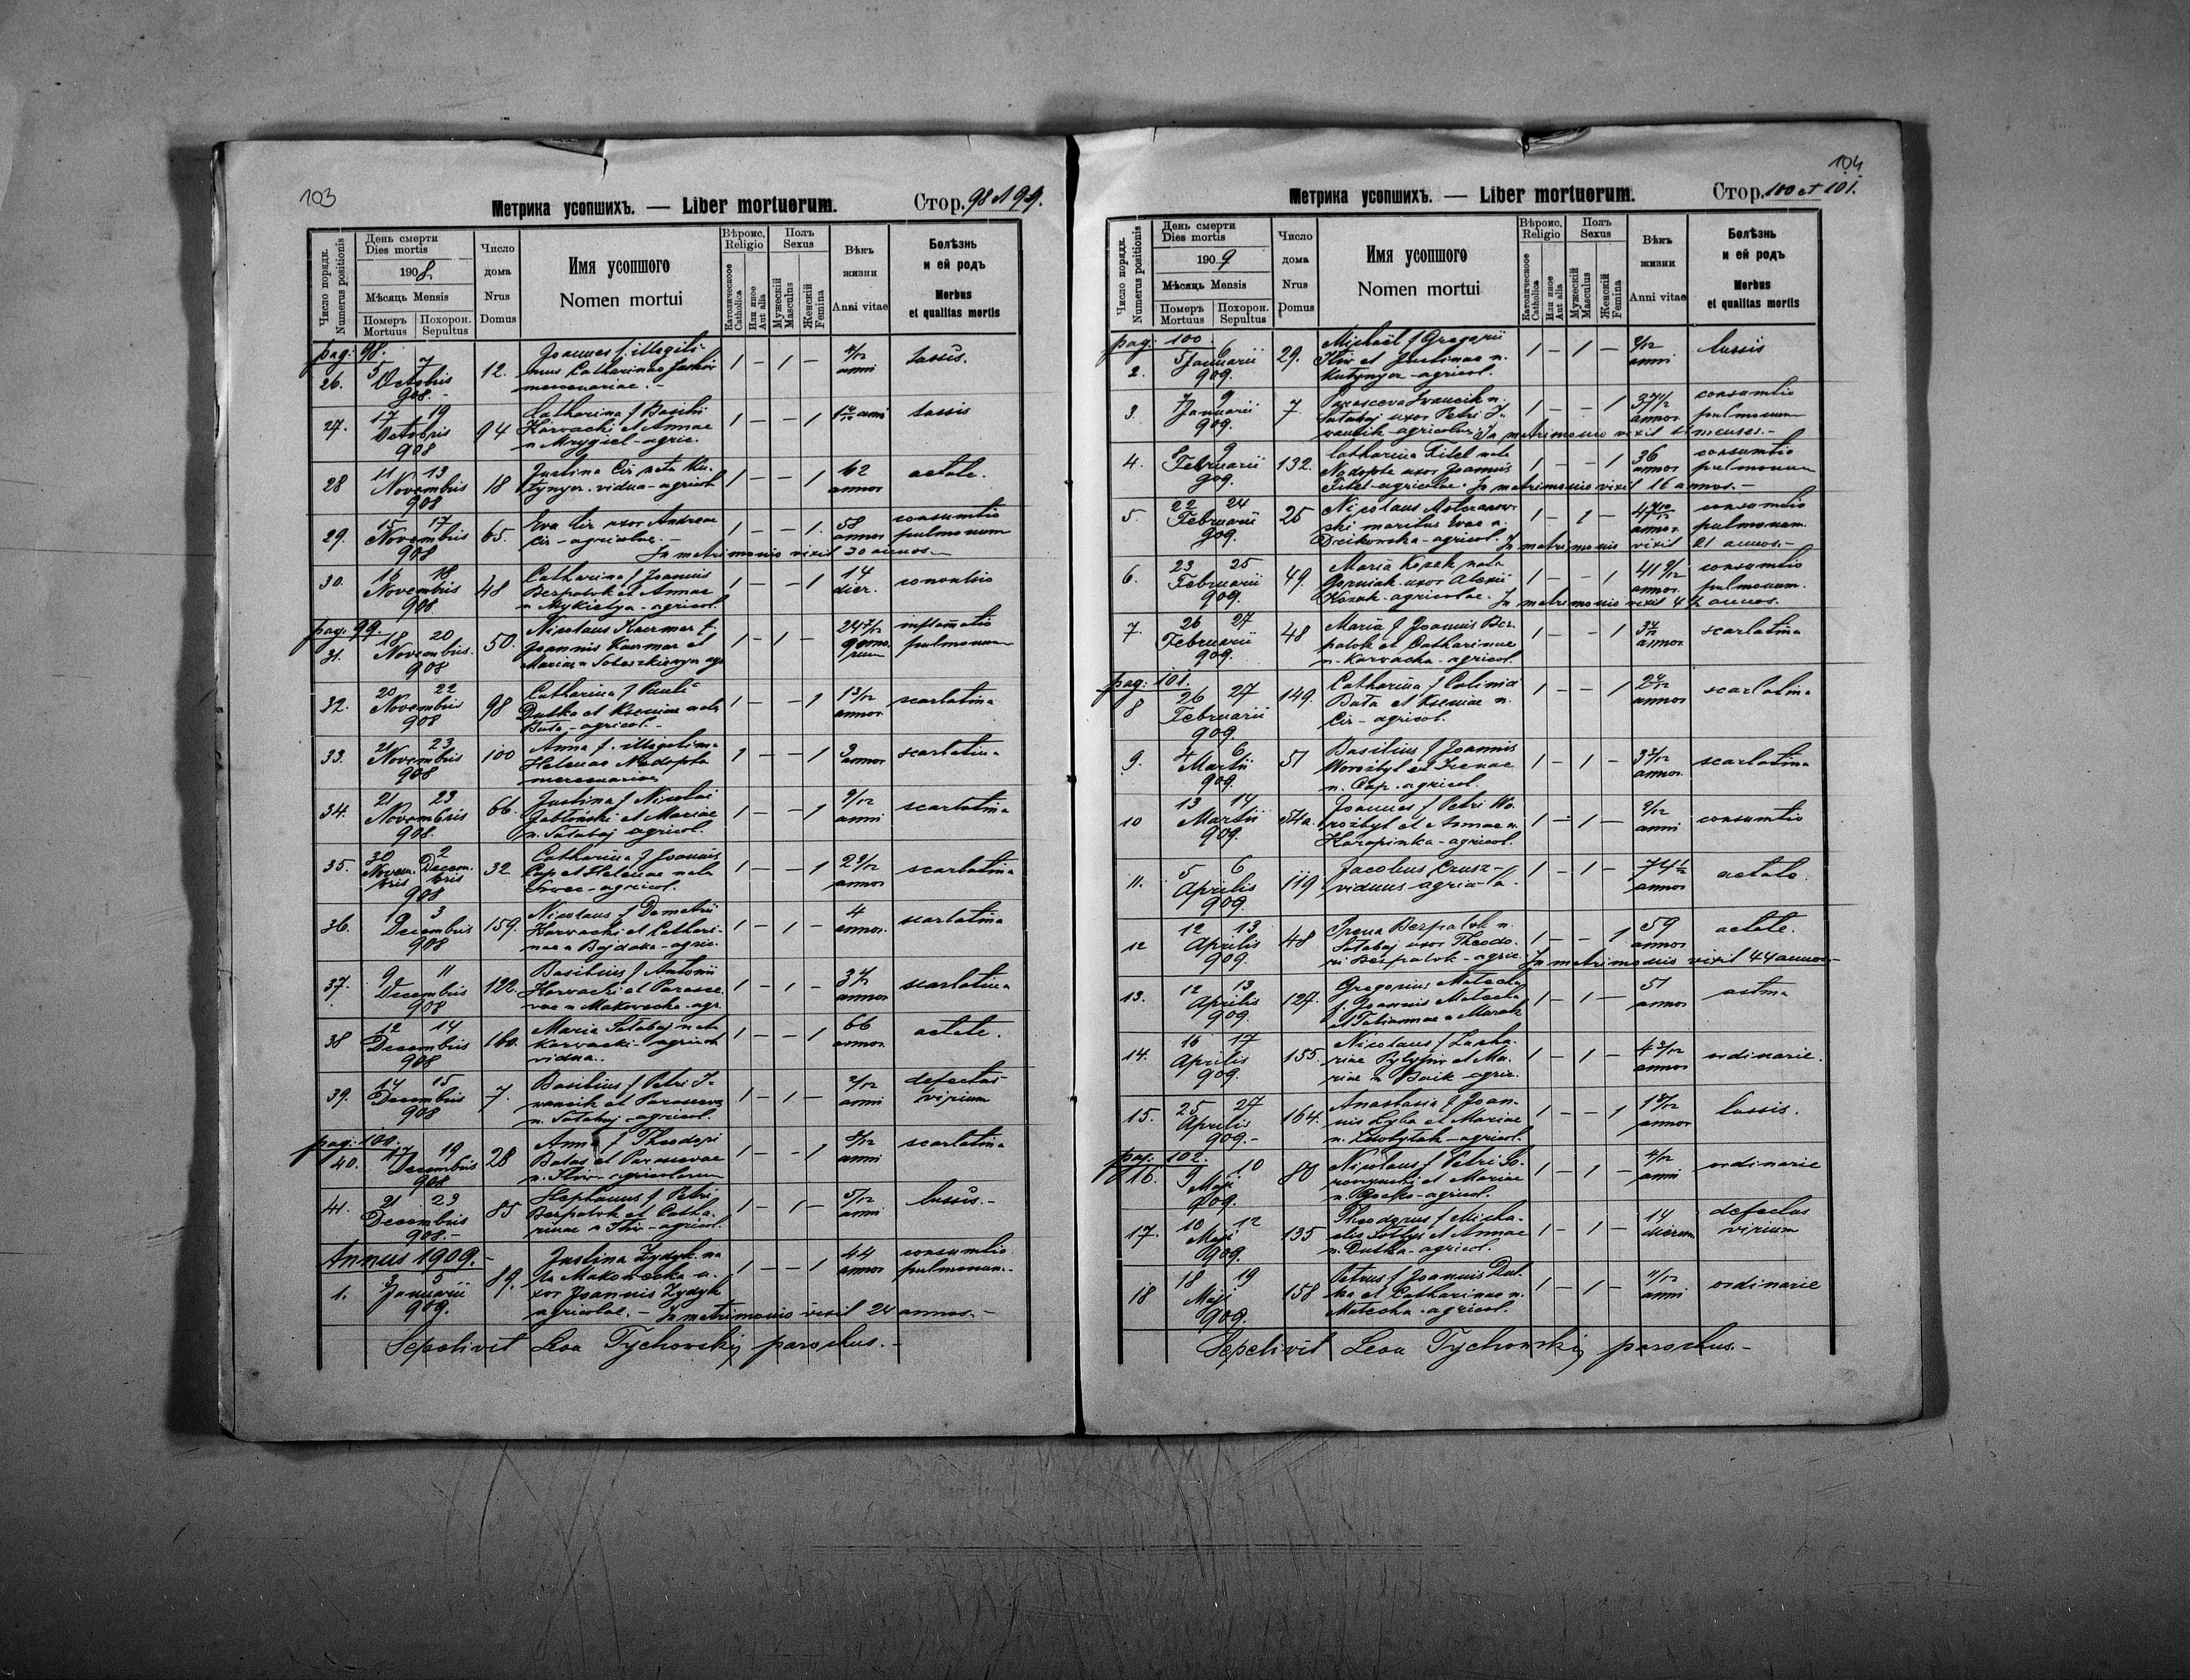 103
Метрика усопшихъ. — Liber mortuorum.
Стор. 98 et 99.
Число порядк. Numerus positionis
День смерти
Dies mortis
1908.
Мѣсяць Mensis
Померъ Mortuus
Похорон. Sepultus
Число дома Nrus Domus
Имя усопшого
Nomen mortui
Вѣроис. Religio
Католическоое Catholica
Или иное Aut alia
Полъ Sexus
Мужескій Masculus
Женскій Femina
Вѣкъ жизни Anni vitae
Болѣзнь и ей родъ
Morbus et qualitas mortis
pag: 98.
26. 5 7 Octobris 908. 12. Joannes f. illegiti-
mus Catharinae
mercenariae. - 1 – 1 – 4/12 anni tussis.
27. 17 19 Octobris 908 94 Catharina f Basilii
Karwacki et Annae
n Mrygiel - agric. 1 – – 1 tussis
28 11 13 Novembris 908 18 Justina Cir nata Ku-
tynyer. vidua - agricol 1 – – 1 62 annor aetate.
29. 15 17 Novembris 908 65. Eva Cir uxor Andreae
Cir - agricolae. - 1 – – 1. 58 annor consumtio pulmonum
In matrimonio vixit 30 annos. –
30. 16 18 Novembris 908 48 Catharina f Joannis
Bezpalok et Annae
n Mykietyn - agricol. 1 – – 1 14 dier. convulsio
pag: 99.
31. 18 20 Novembris. 908 50. Nicolaus Kaermar f.
Joannis Kaermar et
Mariae n 1 – 1 – 24 inflamatio pulmonum
32. 20 22 Novembris 908 98 Catharina f Pauli
Dutka et Kseniae nata
Buta - agricol. - 1 – – 1 annor. scarlatina
33. 21 23 Novembris 908 100 Anna f. illegitima
Helenae Nadopta
mercenariae 1 – – 1 3 annor scarlatina
34. 21 23 Novembris 908. 66. Justina f Nicolai
Jabłoński et Mariae
n. Sałabaj agricol. 1 – – 1 9/12 anni scarlatina
35. 30 Novem-bris 2 Decem-bris 908 32 Catharina f Joannis
Cap et Helenae nata
Szwec - agricol. 1 – – 1 annor scarlatina
36. 1 3 Decembris 908 159. Nicolaus f Demetrii
Karwacki et Cathari-
nae n Bajdaka - agric. 1 – 1 – 4 annor. scarlatina
37. 9 11 Decembris 908 122. Basilius f Antonii
Karwacki et Parasce-
vae n Makowecka - agr. 1 – 1 – annor scarlatina
38 12 14 Decembris 908 160. Maria Sałabaj nata
Karwacki - agricol
vidua.. 1 – – 1 66 annor. aetate.
39. 14 15 Decembris 908 7. Basilius f Petri I-
wancik et Parascevae
n. Sałabaj - agricol. 1 – 1 – 2/12 anni defectus virium
pag: 100.
40. 17 19 Decembris 908 28 Anna f Theodori
Batas et Parascevae
n. Iliw - agricolarum 1 – – 1 8/12 anni scarlatina
41. 21 23 Decembris 908. – 85 Stephanus f Petri
Bezpalok et Catha-
rinae n Iliw - agricol. 1 – 1 – 5/12 anni tussis. –
Annus 1909. –
1. 3 5 Januarii 909. 89. Justina Zydyk na-
ta Makowecka u-
xor Joannis Zydyk
agricolae. – 1 – – 1 44 annor consumtio pulmonum. –
In matrimonio vixit 24 annos. –
Sepelivit Leon Tychowskij parochus. –
104
Метрика усопшихъ. — Liber mortuorum.
Стор. 100 et 101.
Число порядк. Numerus positionis
День смерти
Dies mortis
1909
Мѣсяць Mensis
Померъ Mortuus
Похорон. Sepultus
Число дома Nrus Domus
Имя усопшого
Nomen mortui
Вѣроис. Religio
Католическоое Catholica
Или иное Aut alia
Полъ Sexus
Мужескій Masculus
Женскій Femina
Вѣкъ жизни Anni vitae
Болѣзнь и ей родъ
Morbus et qualitas mortis
pag: 100
2. 5 6 Januarii 909. 29. Michael f Gregorii
Iliw et Justinae n.
Kutynyer - agricol. 1 – 1 – anni tussis
3. 7 9 Januarii 909. 7. Parasceva Iwancik n.
Sałabaj uxor Petri I-
wancik - agricolae. 1 – – 1 annor consumtio pulmonum
In matrimonio vixit menses. –
4. 8 9 Februarii 909. 132. Catharina Fitel nata
Nadopta uxor Joannis
Fitel - agricolae. 1 – – 1 36 annor consumtio pulmonum
In matrimonio vixit 16 annos. –
5. 22 24 Februarii 909. 25 Nicolaus
ski maritus Evae n.
Dzikowska - agricol. 1 – 1 – annor. consumtio pulmonum.
In matrimonio vixit 21 annos. –
6. 23 25 Februarii 909. 49. Maria Kozak nata
Gorniak uxor Alexii
Kozak - agricolae. 1 – – 1 41 9/12 annor. consumtio pulmonum.
In matrimonio vixit annos.
7. 26 27 Februarii 909. 48 Maria f Joannis Bez-
palok et Catharinae
n. Karwacka - agricol. 1 – – 1 annor scarlatina
pag: 101.
8 26 27 Februarii 909. 149. Catharina f
Buta et Kseniae n.
Cir - agricol. 1 – – 1 annor scarlatina
9. 4 6 Martii 909. 51 Basilius f Joannis
Worożbyt et Irenae
n. Cap - agricol. 1 – 1 – annor. scarlatina
10 13 14 Martii 909. 54a. Joannes f Petri Wo-
rożbyt et Annae n.
Karapinka - agricol. 1 – 1 – anni consumtio
11. 5 6 Aprilis 909. 119 Jacobus
viduus agricola. 1 – 1 – 74 annor aetate.
12 12 13 Aprilis 909. 48. Irena Bezpalok n.
Sałabaj uxor Theodo-
ri Bezpalok - agric. 1 – – 1 59 annor aetate.
In matrimonio vixit 44 annos. –
13. 12 13 Aprilis 909. 127. Gregorius Matecha
f Joannis Matecha
et Tatiannae n Marak 1 – 1 – 51 annor astma
14. 16 17 Aprilis 909. 155. Nicolaus f Zacha-
riae Pylypiw et Ma-
riae n Baik agric. 1 – 1 – 4 3/12 annor ordinarie.
15. 25 27 Aprilis 909. – 164. Anastasia f Joan-
nis Zyba et Mariae
n. - agricol. 1 – – 1 annor tussis.
pag. 102.
16. 9 10 Maji 909. 80 Nicolaus f Petri
et Mariae
- agricol. 1 – 1 – 4/12 anni ordinarie
17. 10 12 Maji 909. 135 Theodorus f Micha-
elis Sołtys et Annae
n. Dutka - agricol. 1 – 1 – 14 dierum defectus virium
18 18 19 Maji 909. 158 Petrus f Joannis Dut-
ka et Catharinae n.
Matecha - agricol. 1 – 1 – 11/12 anni ordinarie
Sepelivit Leon Tychowskij parochus. –